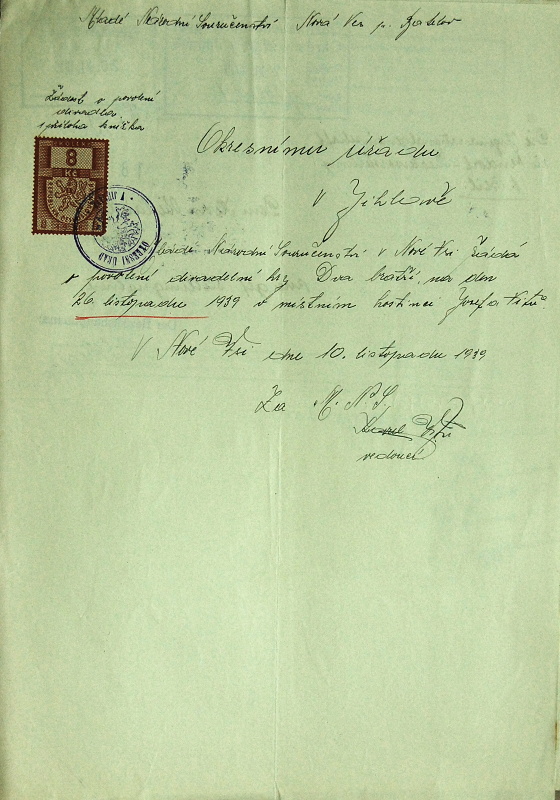 Mladé Národní Souručenství Nová Ves p. Batelov
Žádost o povolení
divadla.
1 příloha knížka
KOLKOVNÉ
8
Kč
OKRESNÍ ÚŘAD
Okresnímu úřadu
v Jihlavě
Mladé Národní Souručenství v Nové Vsi žádá
o povolení divadelní hry Dva bratři, na den
26. listopadu 1939 v místním hostinci Josefa
V Nové Vsi dne 10. listopadu 1939
Za M. N. S.
Karel
vedoucí